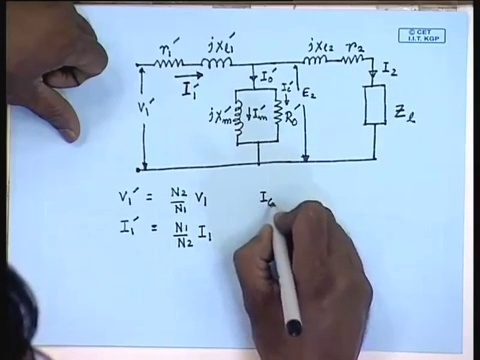 © CET
I.I.T. KGP
r₁′ jXl₁′ jXl₂ r₂
I₁′ I₀′ I₂
V₁′ jXm′ Im′ Ii′ R₀′ E₂ Zl
V₁′ = N2/N1 V₁
I₁′ = N1/N2 I₁
I